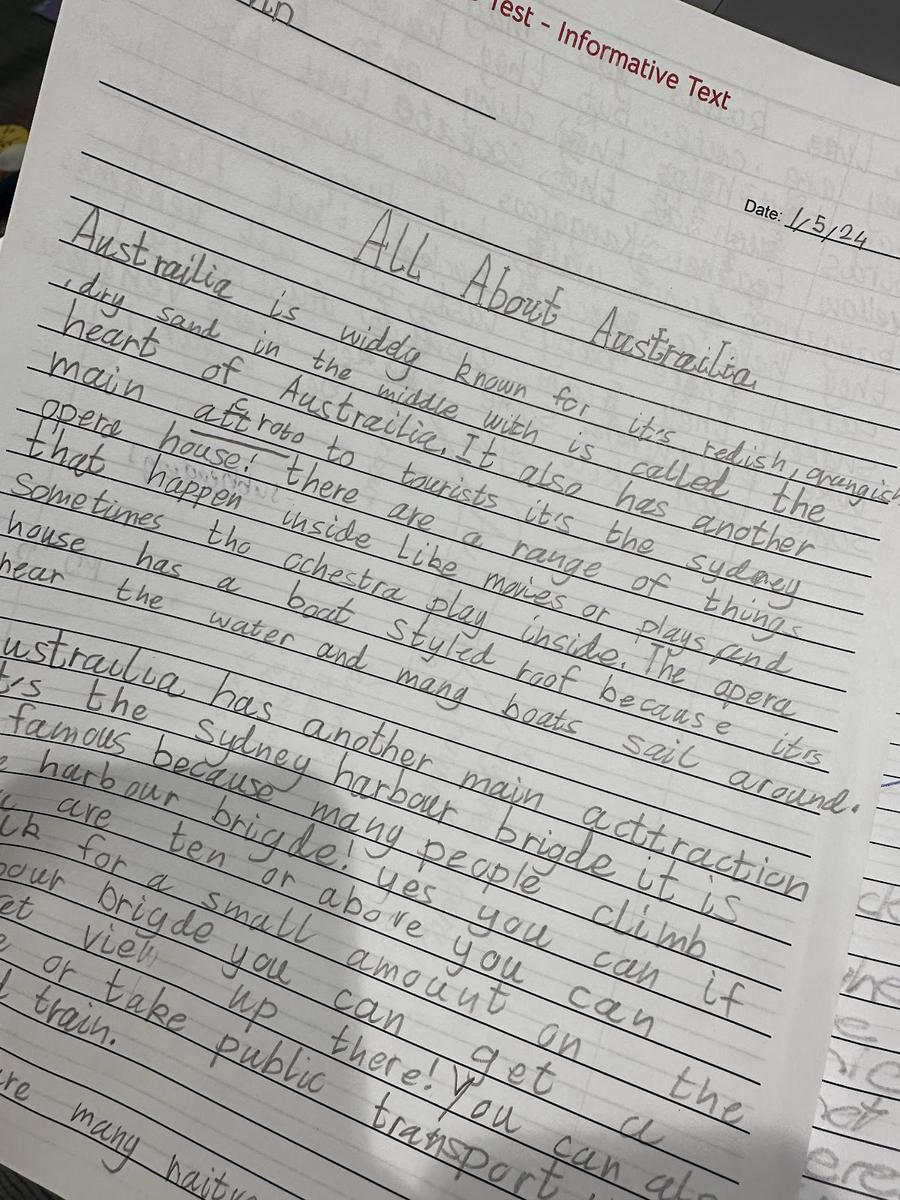 Test - Informative Text
Date: 1/5/24
All About Austrailia
Austrailia is widdy known for it's redish, orangish
,dry sand in the middle with is called the
heart of Austrailia. It also has another
main to tourists it's the sydney
opera house! there are a range of things
that happen inside like movies or plays and
Sometimes the ochestra play inside. The opera
house has a boat styled roof because it's
near the water and many boats sail around.
ustrailia has another main acttraction
t's the Sydney harbour brigde it is
famous because many people climb
harbour brigde! yes you can if
are ten or above you can
for a small amount on the
bour brigde you can get a
view up there! You can als
or take public transport
train.
re many